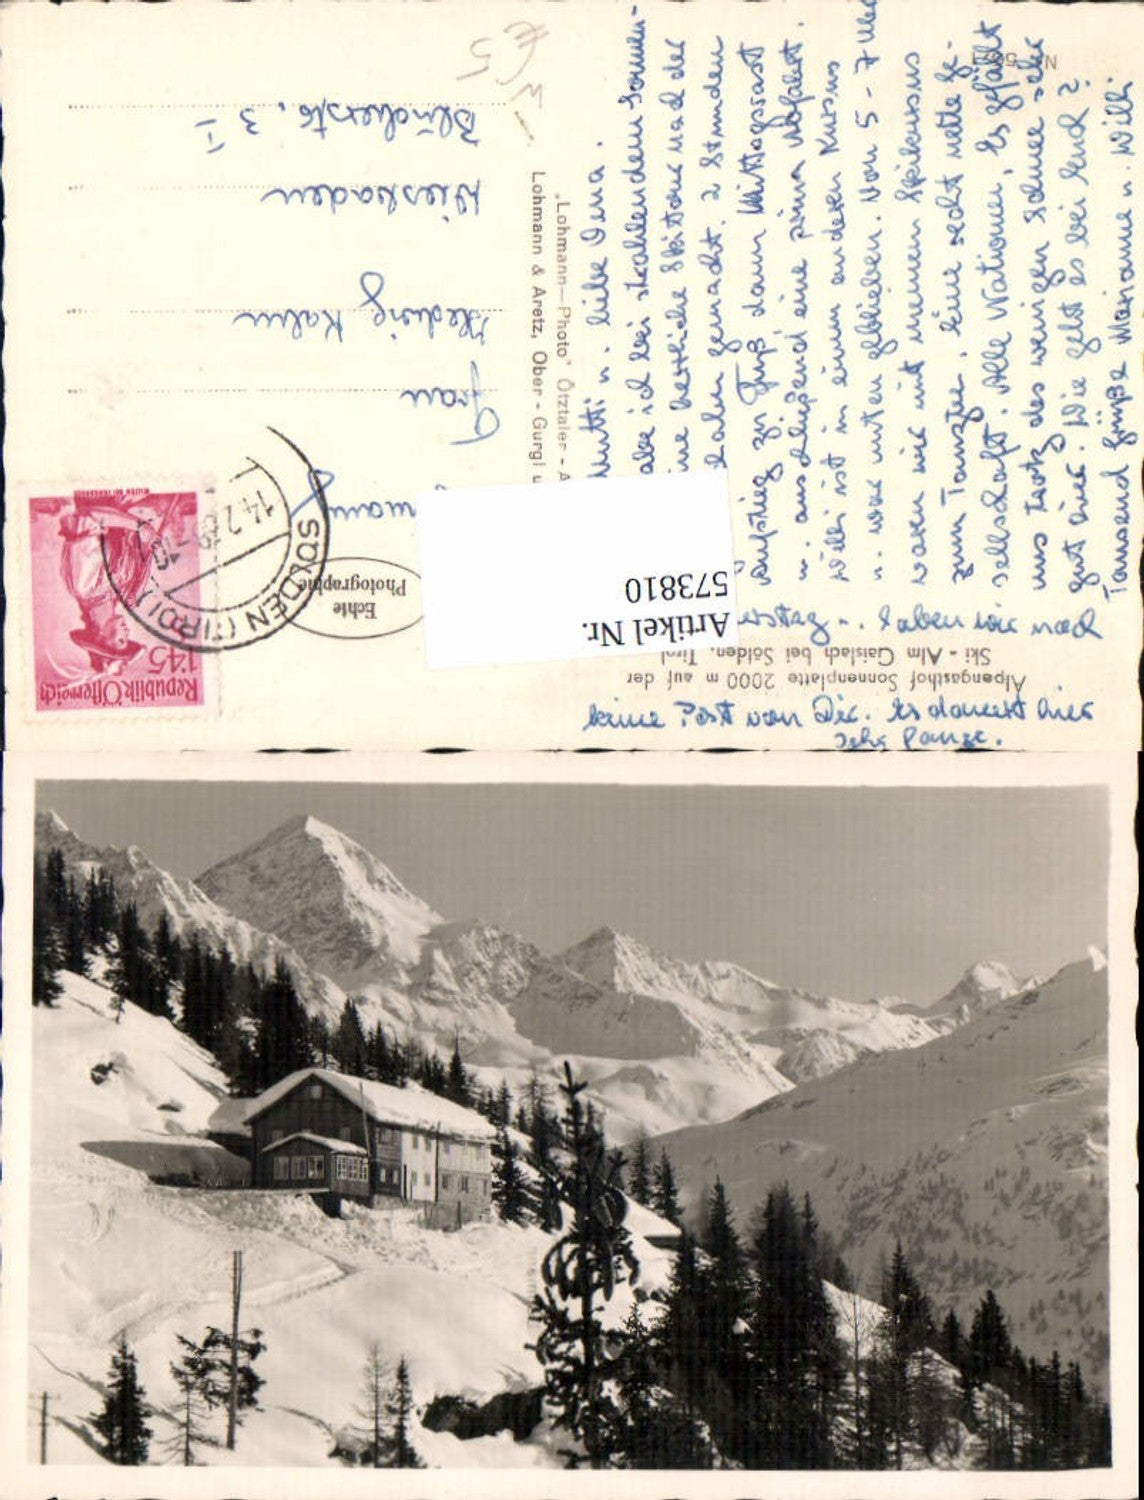 Mutti u. liebe Oma.
habe ich bei strahlendem Sonnen-
eine herrliche Skitour nach der
bahn gemacht. 2 Stunden
Aufstieg zu Fuß dann Mittagsrast
u. anschließend eine prima Abfahrt.
Willi ist in einem anderen Kursus
u. war unten geblieben. Von 5-7 Uhr
waren wir mit meinem Skikursus
zum Tanztee. Eine recht nette Ge-
sellschaft. Alle Nationen, Es gefällt
uns trotz des wenigen Schnee sehr
gut hier. Wie geht es bei Euch?
Tausend Grüße Marianne u. Willi
haben wir noch
keine Post von Dir. Es dauert hier
sehr lange.
Alpengasthof Sonnenplatte 2000 m auf der
Ski - Alm Gaislach bei Sölden, Tirol
„Lohmann—Photo" Ötztaler - A
Lohmann & Aretz, Ober - Gurgl u
Echte
Photographie
Artikel Nr.
573810
Republik Österreich
1'45
SÖLDEN (TIROL)
Frau
Hedwig Kalin
Wiesbaden
Blücherstr. 3 I
€ 5